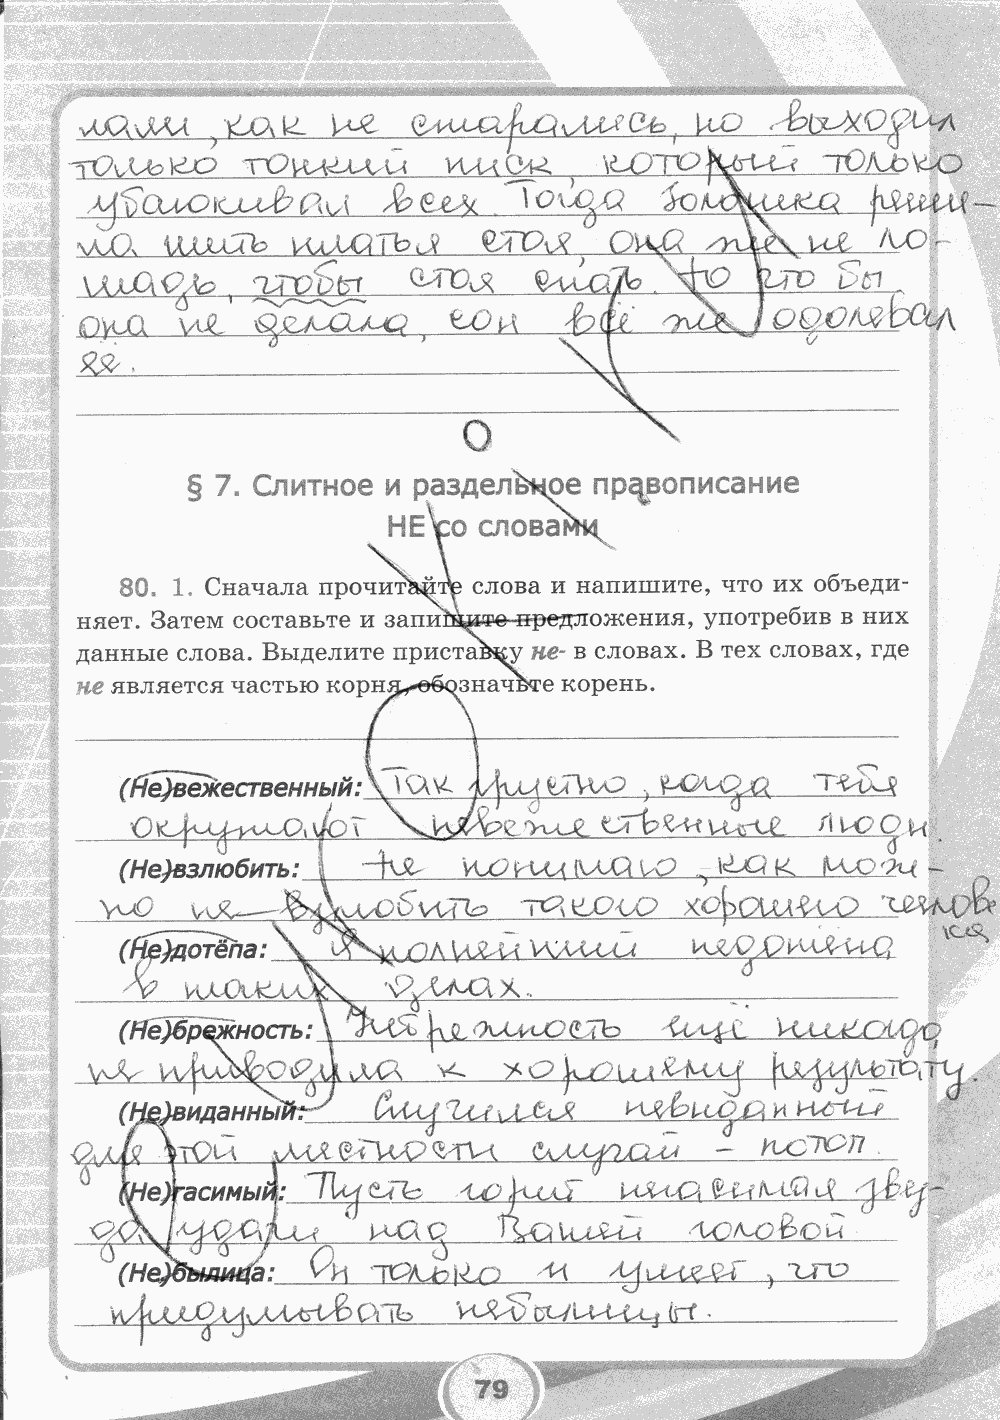 лали, как не старались, но выходил
только тонкий писк, который только
убаюкивал всех. Тогда Золушка реши-
ла шить платья стоя, она же не ло-
шадь, чтобы стоя спать. Но что бы
она не делала, сон всё же одолевал
её.
§ 7. Слитное и раздельное правописание
НЕ со словами
80. 1. Сначала прочитайте слова и напишите, что их объеди-
няет. Затем составьте и запишите предложения, употребив в них
данные слова. Выделите приставку не- в словах. В тех словах, где
не является частью корня, обозначьте корень.
(Не)вежественный: Так грустно, когда тебя
окружают невежественные люди.
(Не)взлюбить: Не понимаю, как мож-
но не взлюбить такого хорошего челове
ка
(Не)дотёпа: Я полнейший недотёпа
в таких делах.
(Не)брежность: Небрежность ещё никогда
не приводила к хорошему результату.
(Не)виданный: Случился невиданный
для этой местности случай – потоп.
(Не)гасимый: Пусть горит негасимая звез-
да удачи над Вашей головой.
(Не)былица: Он только и умеет, что
придумывать небылицы.
79